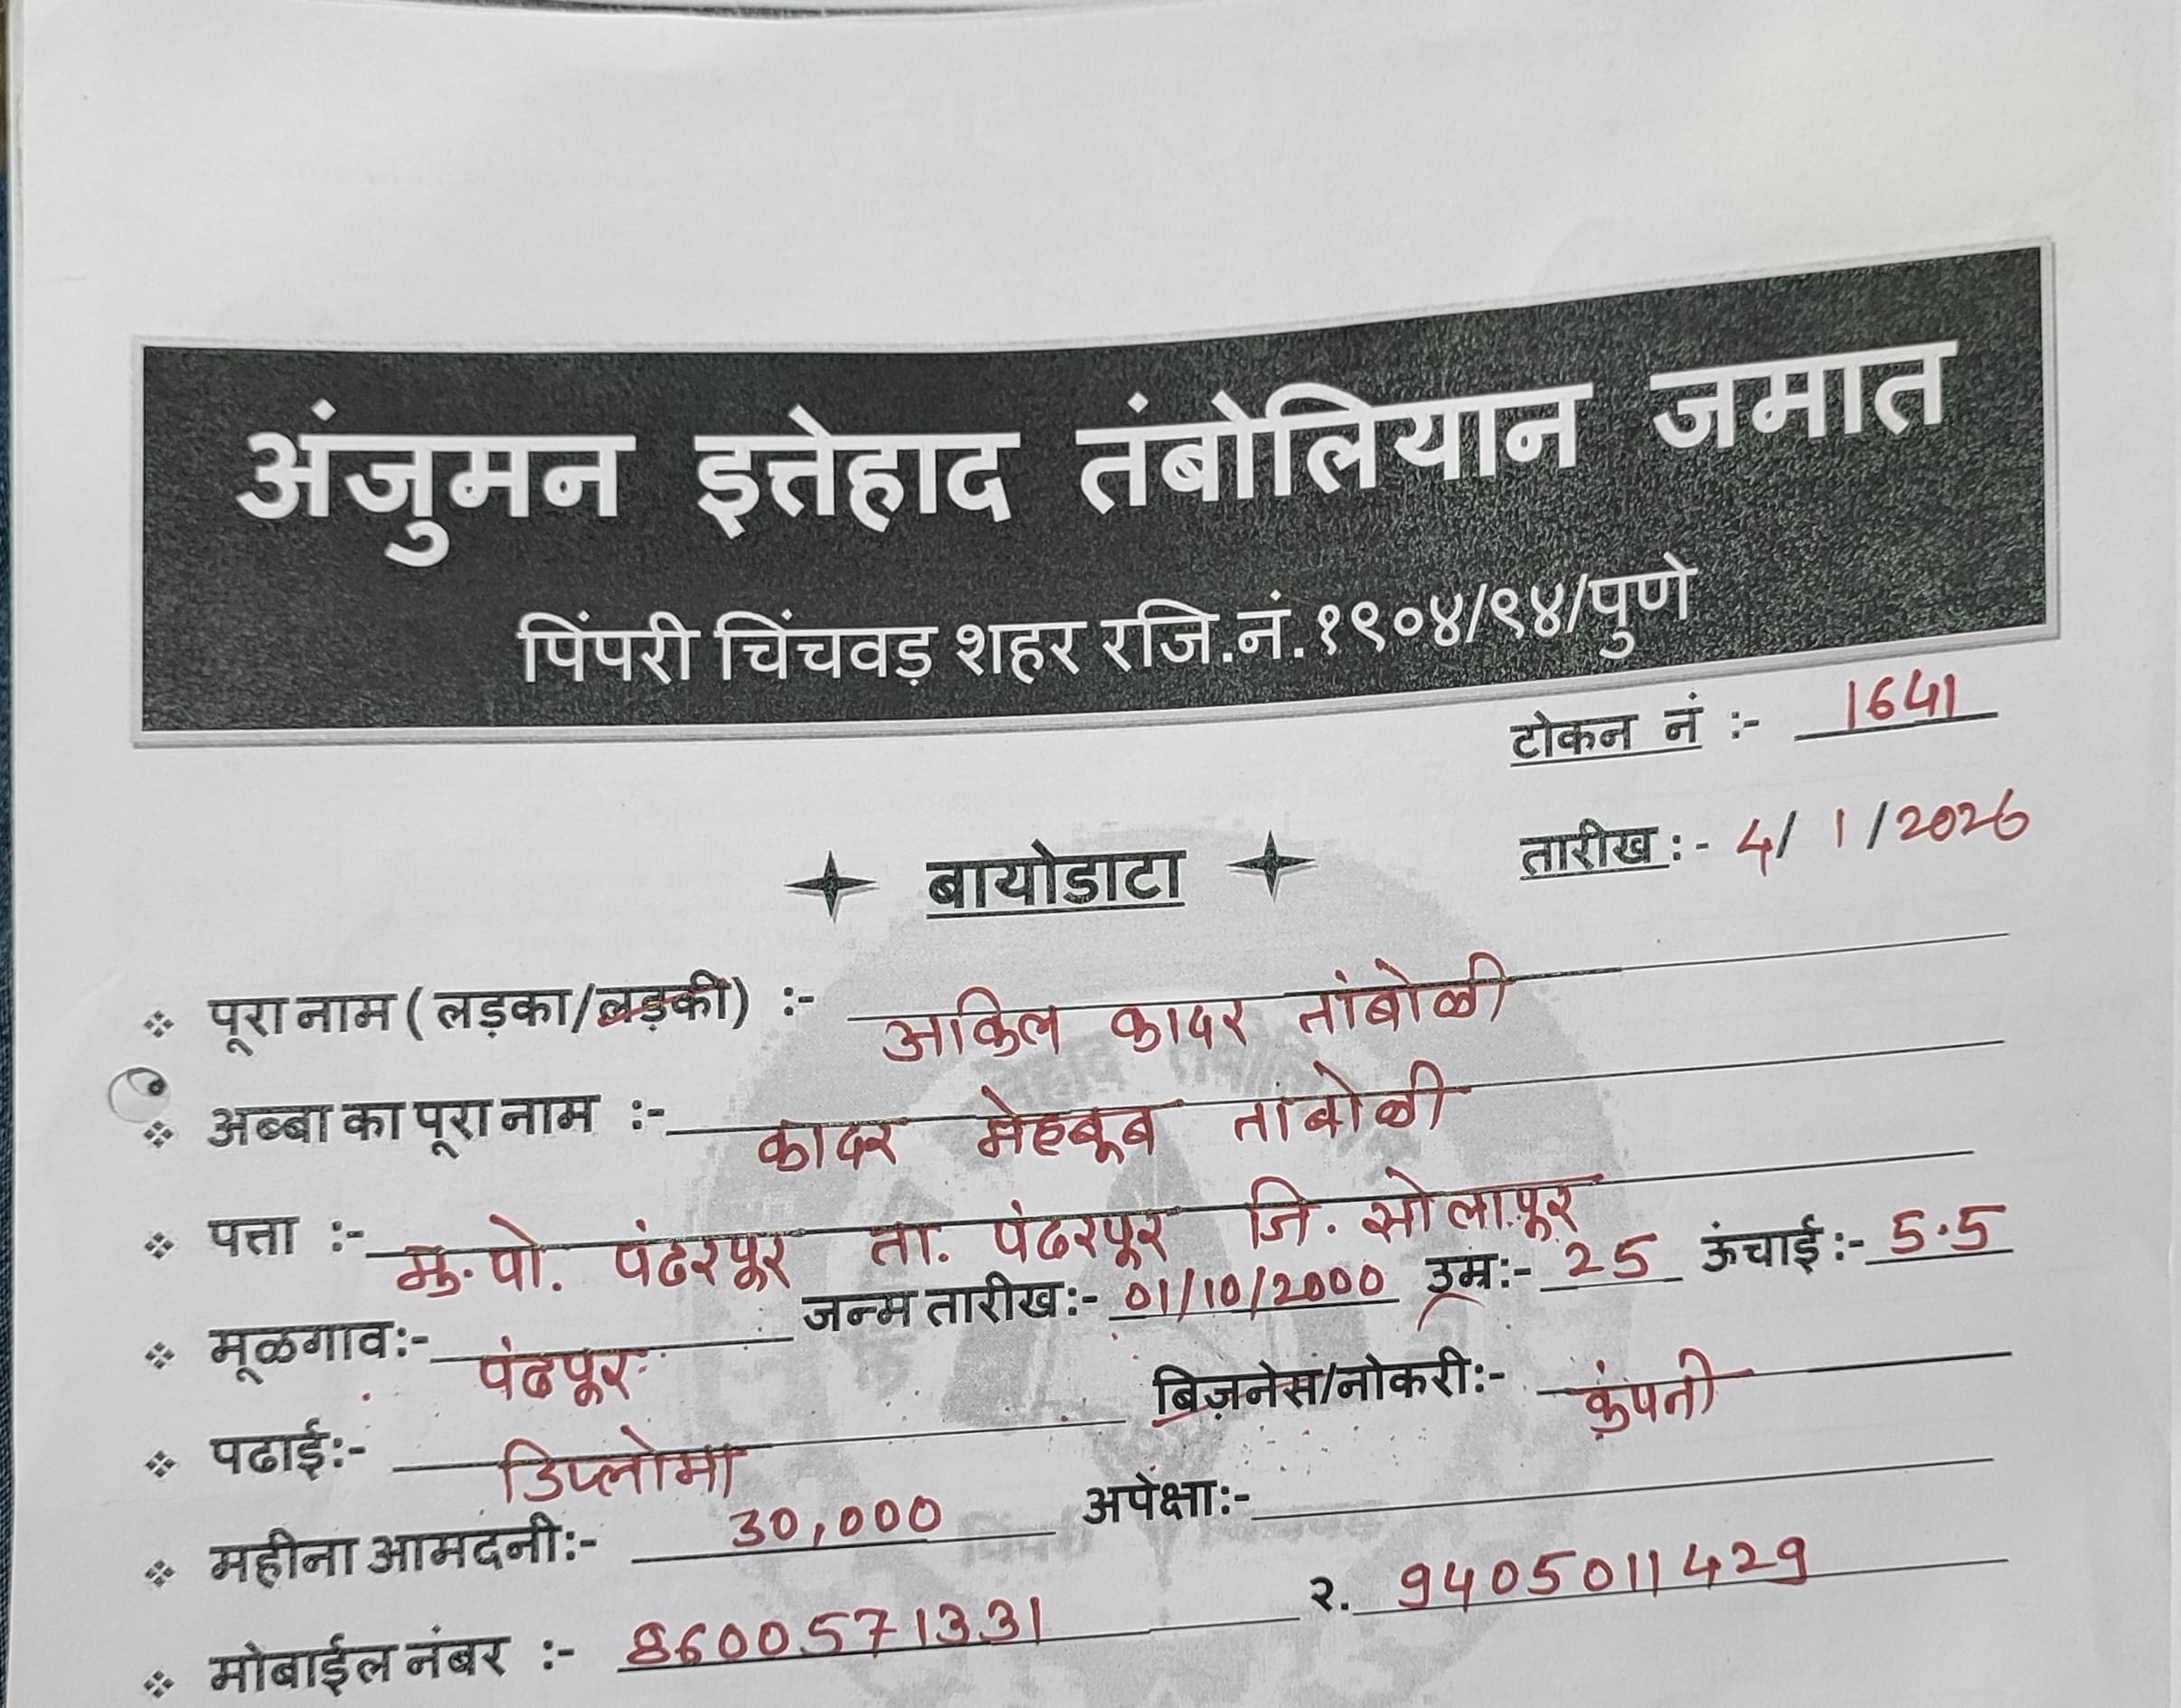 अंजुमन इत्तेहाद तंबोलियान जमात
पिंपरी चिंचवड़ शहर रजि.नं.१९०४/९४/पुणे
टोकन नं :- 1641
तारीख :- 4/ 1 /2026
बायोडाटा
पूरा नाम ( लड़का/लड़की) :- अकिल कादर तांबोळी
अब्बा का पूरा नाम :- कादर मेहबूब तांबोळी
पत्ता :- मु.पो. पंढरपूर ता. पंढरपूर जि. सोलापूर
मूळगाव:- पंढपूर जन्म तारीख:- 01/10/2000 उम्र:- 25 ऊंचाई:- 5.5
पढाई:- डिप्लोमा बिज़नेस/नोकरी:- कंपनी
महीना आमदनी:- 30,000 अपेक्षा:-
मोबाईल नंबर :- 8600571331 २. 9405011429